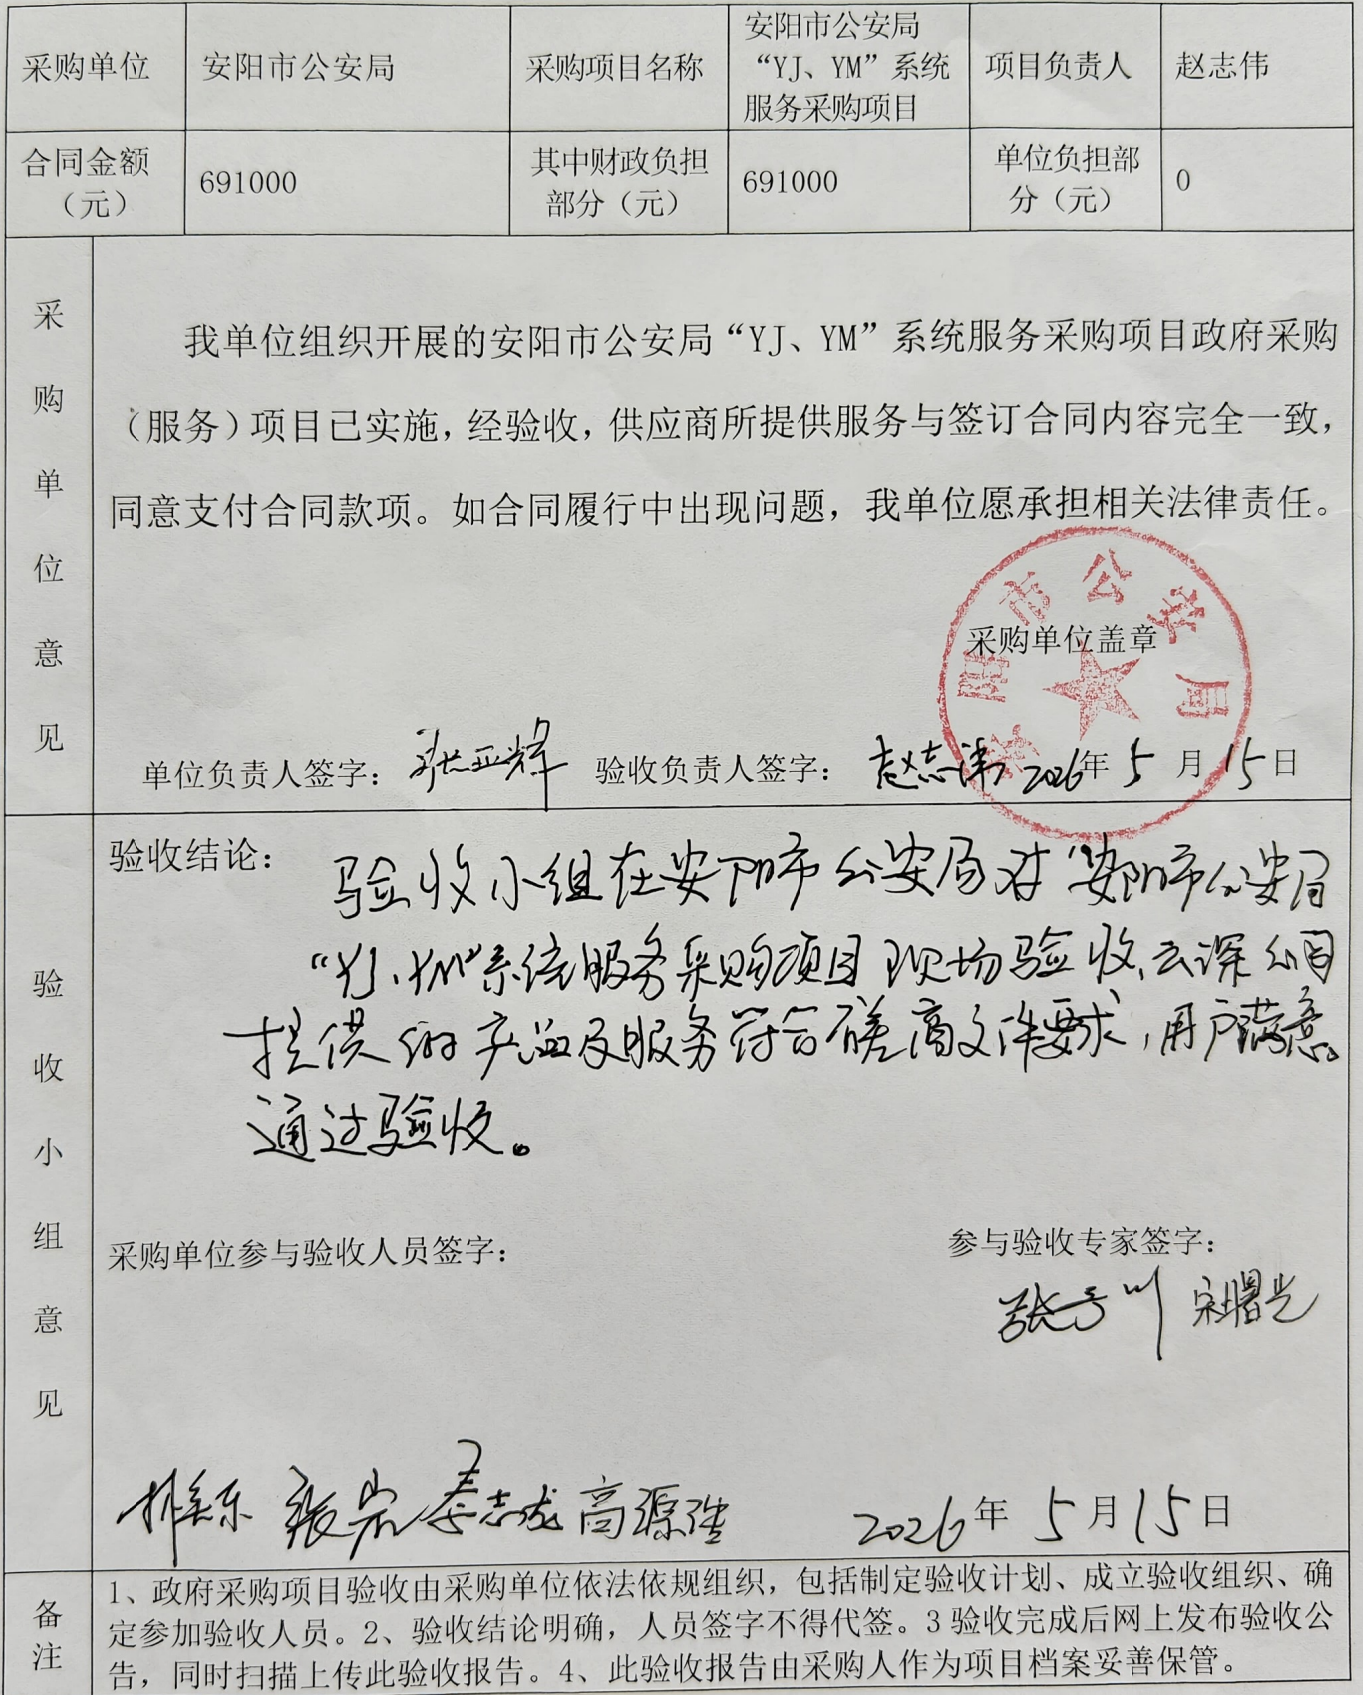 采购单位 安阳市公安局 采购项目名称 安阳市公安局“YJ、YM”系统服务采购项目 项目负责人 赵志伟
合同金额（元） 691000 其中财政负担部分（元） 691000 单位负担部分（元） 0
采购单位意见
我单位组织开展的安阳市公安局“YJ、YM”系统服务采购项目政府采购
（服务）项目已实施，经验收，供应商所提供服务与签订合同内容完全一致，
同意支付合同款项。如合同履行中出现问题，我单位愿承担相关法律责任。
安阳市公安局
采购单位盖章
单位负责人签字： 张亚辉 验收负责人签字： 赵志伟 2026年5月15日
验收小组意见
验收结论： 验收小组在安阳市公安局对“安阳市公安局
“YJ、YM”系统服务采购项目现场验收，云深公司
提供的产品及服务符合磋商文件要求，用户满意。
通过验收。
采购单位参与验收人员签字： 参与验收专家签字：
宋曙光
张岩 秦志成 高源浩 2026年5月15日
备注
1、政府采购项目验收由采购单位依法依规组织，包括制定验收计划、成立验收组织、确
定参加验收人员。2、验收结论明确，人员签字不得代签。3验收完成后网上发布验收公
告，同时扫描上传此验收报告。4、此验收报告由采购人作为项目档案妥善保管。